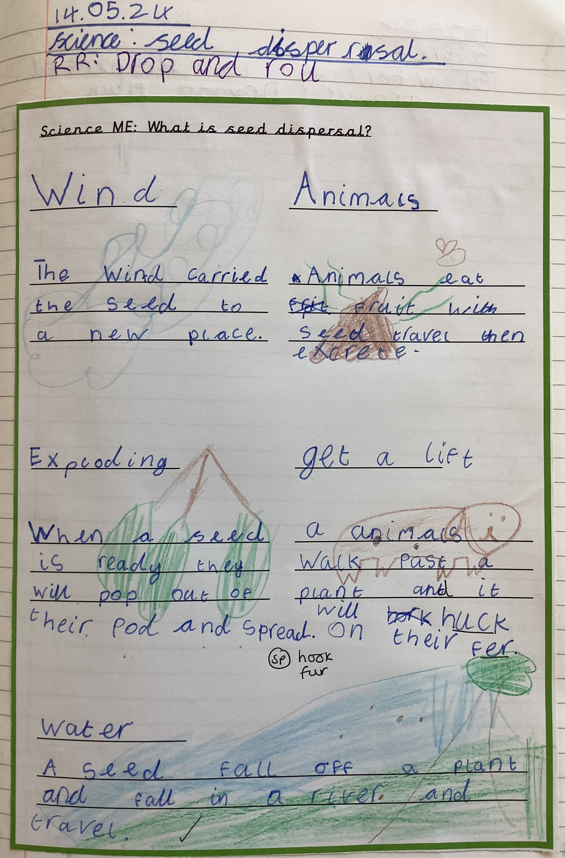 14.05.24
Science: seed disper sal.
RR: Drop and roll
Science ME: What is seed dispersal?
Wind
The wind carried
the seed to
a new place.
Animals
Animals eat
fruit with
seed travel then
excrete.
Exploding
When a seed
is ready they
will pop out of
their pod and spread.
get a lift
a animals
walk past a
plant and it
will huck
On their fer.
sp hook
fur
Water
A seed fall off a plant
and fall in a river and
travel.